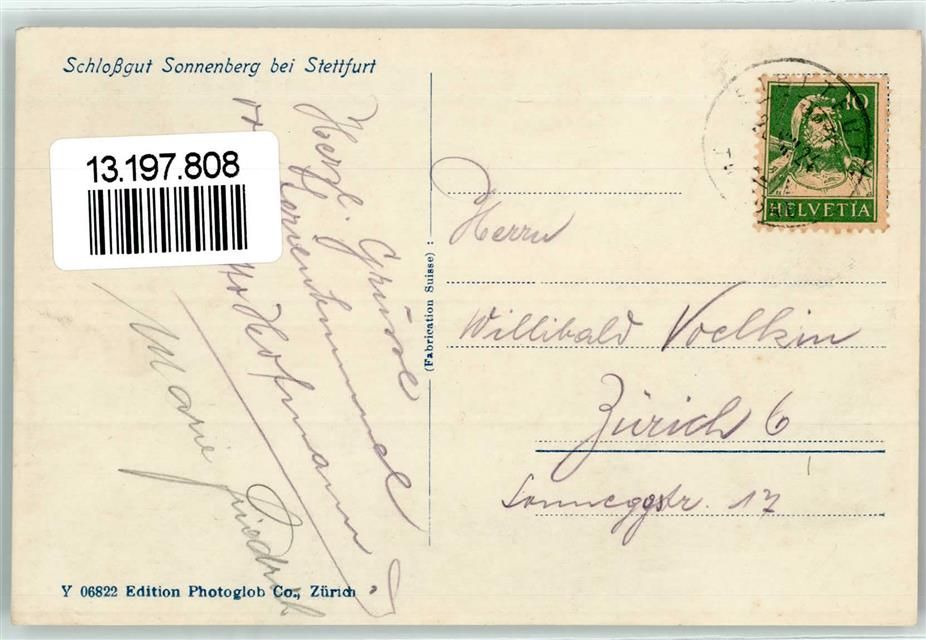 Schloßgut Sonnenberg bei Stettfurt
13.197.808
Herzl. Grüsse
Hofmann
Marie Friedrich
(Fabrication Suisse) :
10
HELVETIA
Herrn
Willibald Voelkin
Zürich 6
Sonneggstr. 17
Y 06822 Edition Photoglob Co., Zürich